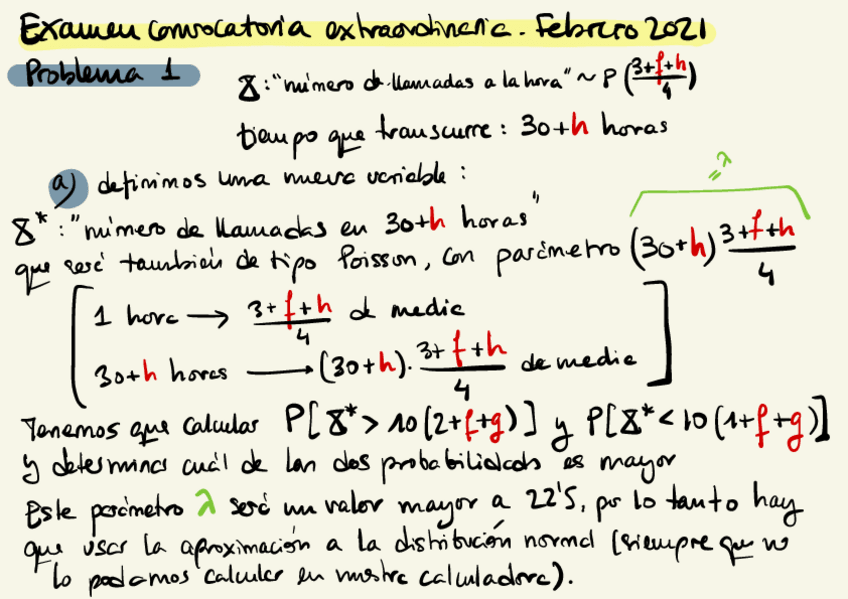 Examen convocatoria extraordinaria. Febrero 2021
Problema 1
X: "número de llamadas a la hora" ~ P (3+f+h / 4)
tiempo que transcurre: 30+h horas
a) definimos una nueva variable:
= λ
X*: "número de llamadas en 30+h horas"
que será también de tipo Poisson, con parámetro (30+h) 3+f+h / 4
1 hora → 3+f+h / 4 de media
30+h horas → (30+h). 3+f+h / 4 de media
Tenemos que calcular P[X* > 10(2+f+g)] y P[X* < 10(1+f+g)]
y determinar cuál de las dos probabilidades es mayor
Este parámetro λ será un valor mayor a 22'5, por lo tanto hay
que usar la aproximación a la distribución normal (siempre que no
lo podamos calcular en nuestra calculadora).